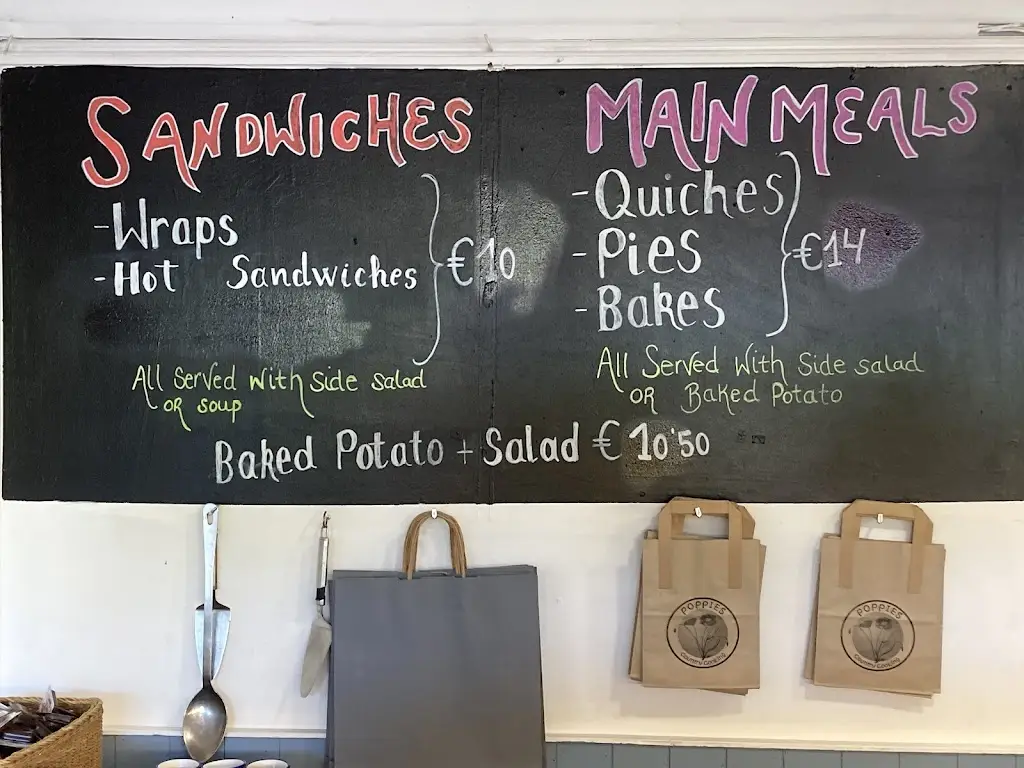 SANDWICHES
- Wraps
- Hot Sandwiches
€10
All Served With Side Salad
OR Soup
MAIN MEALS
- Quiches
- Pies
- Bakes
€14
All Served With Side salad
OR Baked Potato
Baked Potato + Salad € 10'50
POPPIES
Country Cooking
POPPIES
Country Cooking